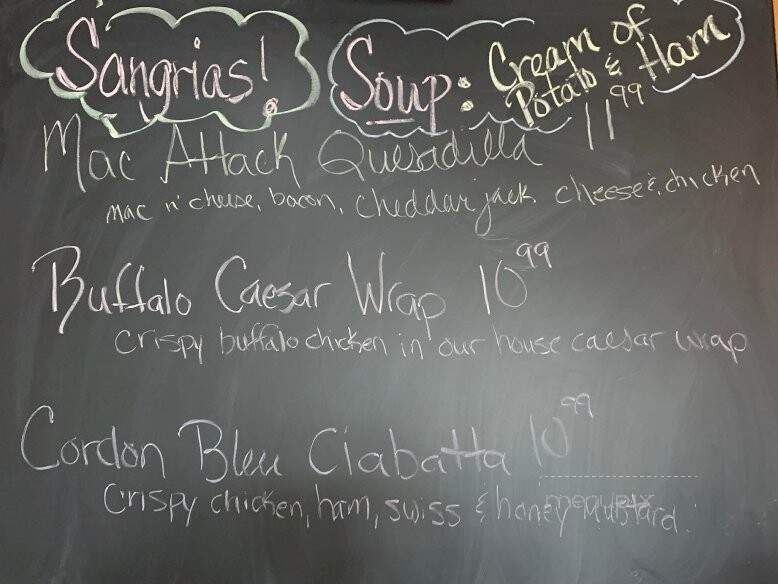 Sangrias!
Soup: Cream of
Potato & Ham
Mac Attack Quesadilla 11 99
mac n' cheese, bacon, cheddar jack cheese & chicken
Buffalo Caesar Wrap 10 99
crispy buffalo chicken in our house caesar wrap
Cordon Bleu Ciabatta 10 99
Crispy chicken, ham, swiss & honey mustard.
menupix